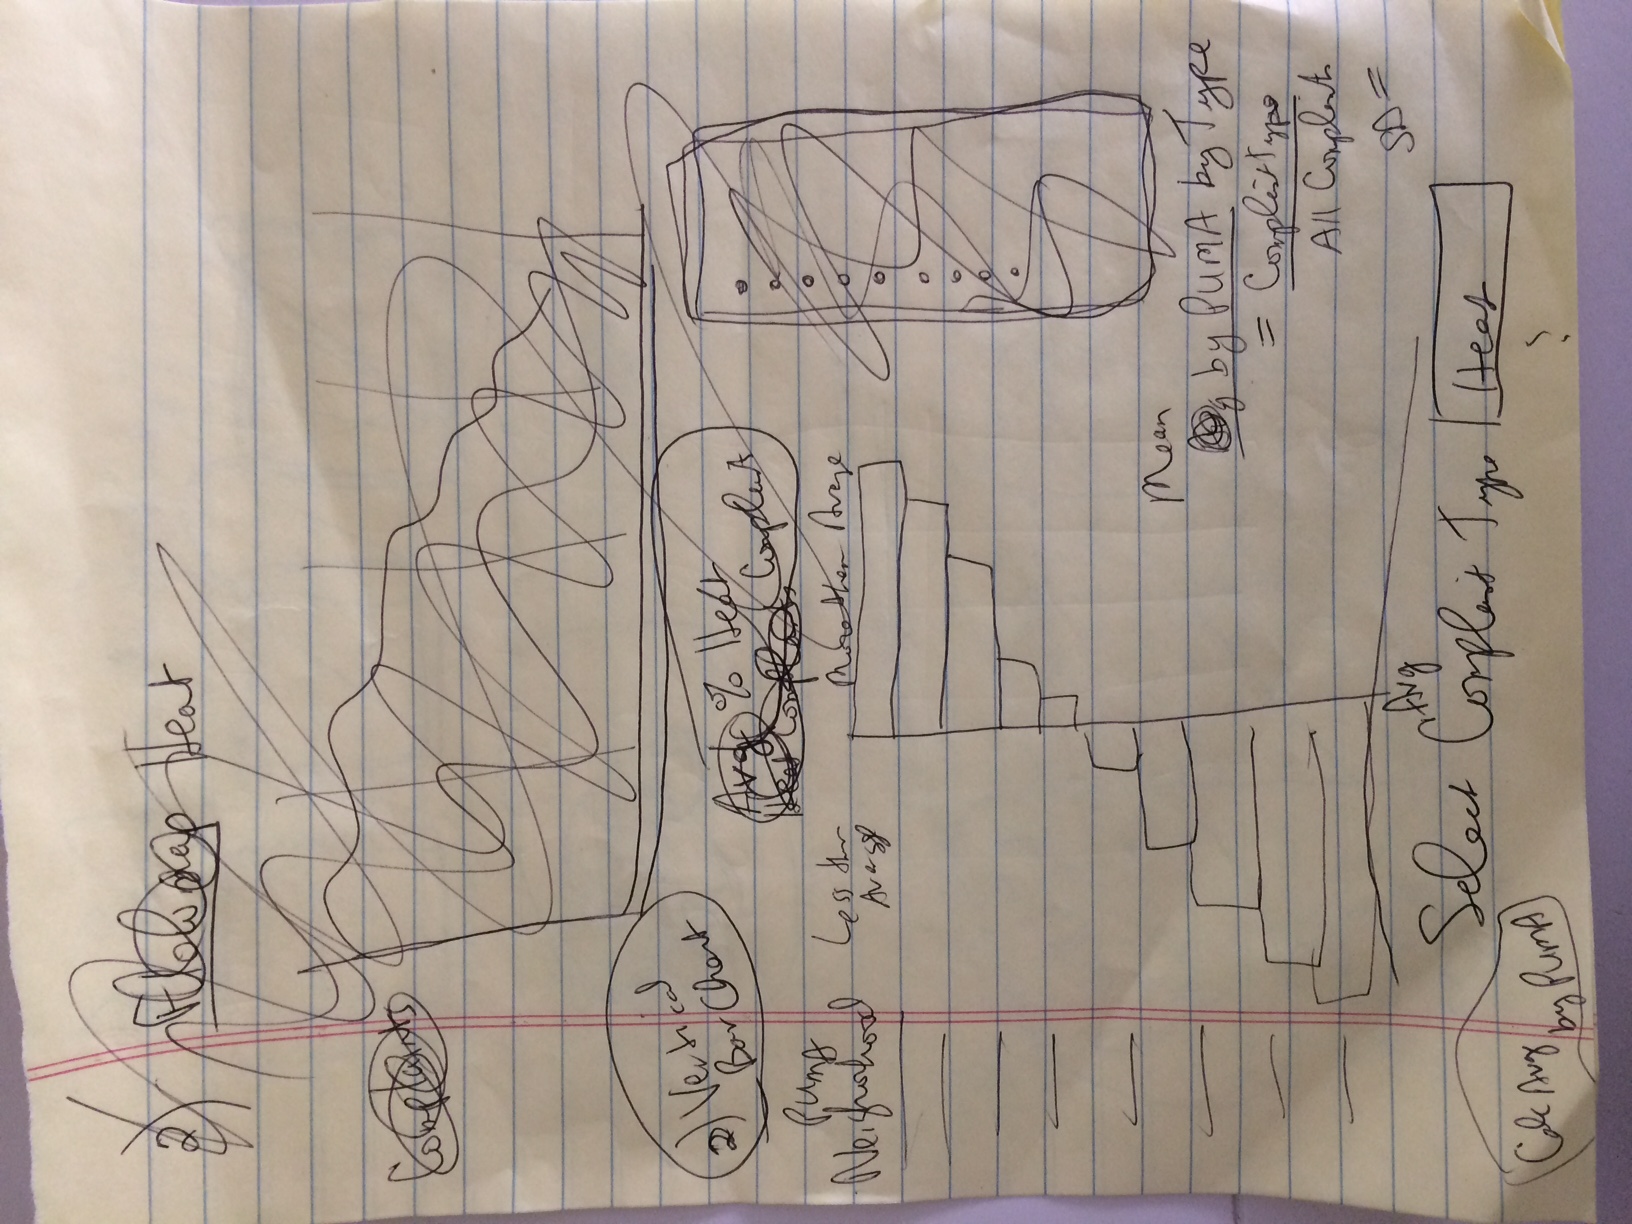 2) Heat
Complaints
2) Vertical
Bar Chart
Avg % Heat
Complaint
Heat Complaints
PUMA
Neighorhood
Less than
Average
More than Average
Mean
by PUMA by Type
= Complaint Type
All Complaints
SD =
Avg
Select Complaint Type Heat
?
Calc Avg
by PUMA